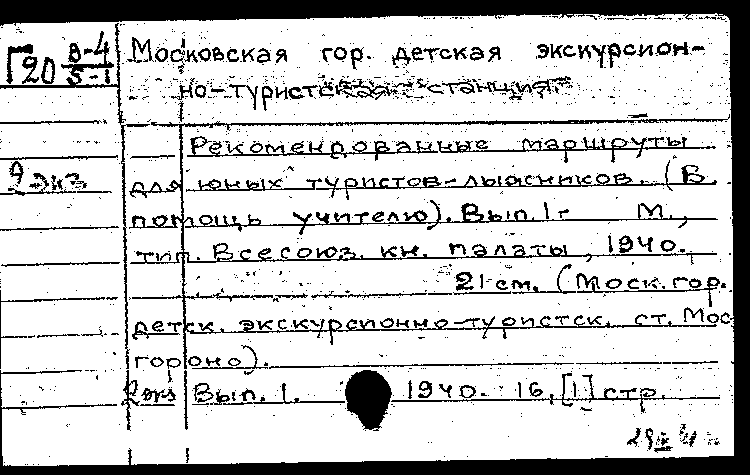 Г20 В-4/5-1
Московская гор. детская экскурсион-
но-туристская станция
Рекомендованные маршруты
2 экз
для юных туристов-лыжников. (В
помощь учителю). Вып. 1- М.,
тип. Всесоюз. кн. палаты, 1940.
21 см. (Моск. гор.
детск. экскурсионно-туристск. ст. Мос
гороно).
2 экз Вып. 1. 1940. 16, [1] стр.